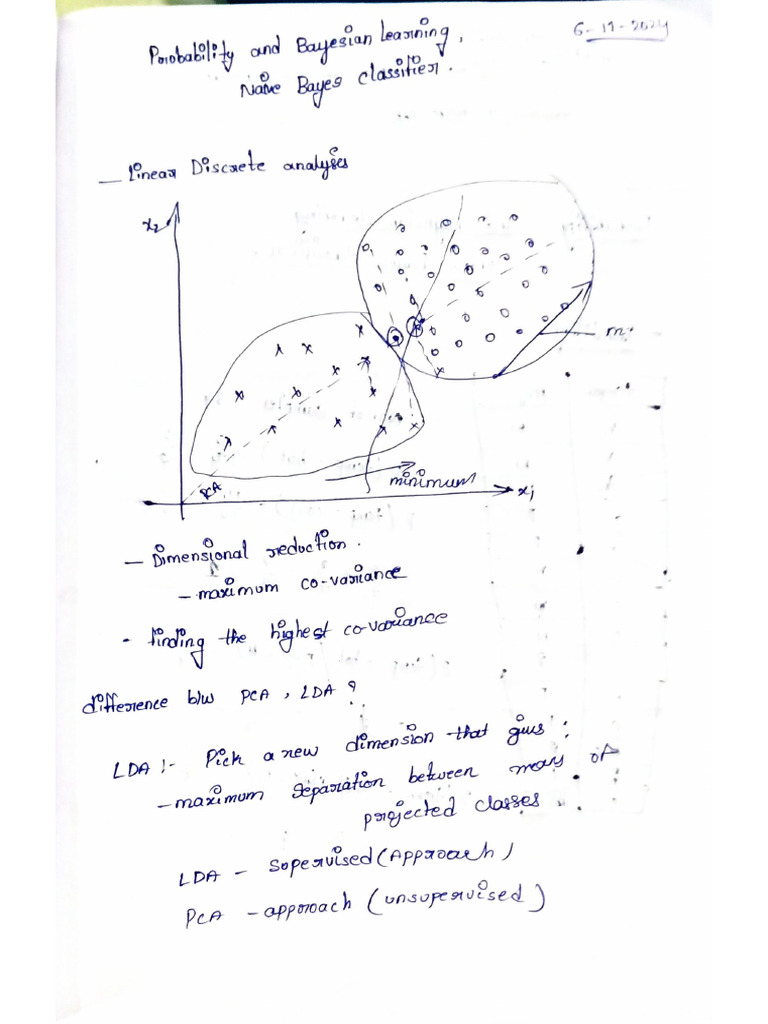 6-11-2024
Probability and Bayesian Learning,
Naive Bayes classifier.
— Linear Discrete analyses
x₂
m
PCA
minimum
x₁
— Dimensional reduction.
— maximum co-variance
- finding the highest co-variance
difference b/w PCA, LDA ?
LDA :- Pick a new dimension that gives :
— maximum separation between means of
projected classes
LDA — Sopervised (Approach)
PCA — approach (unsupervised)